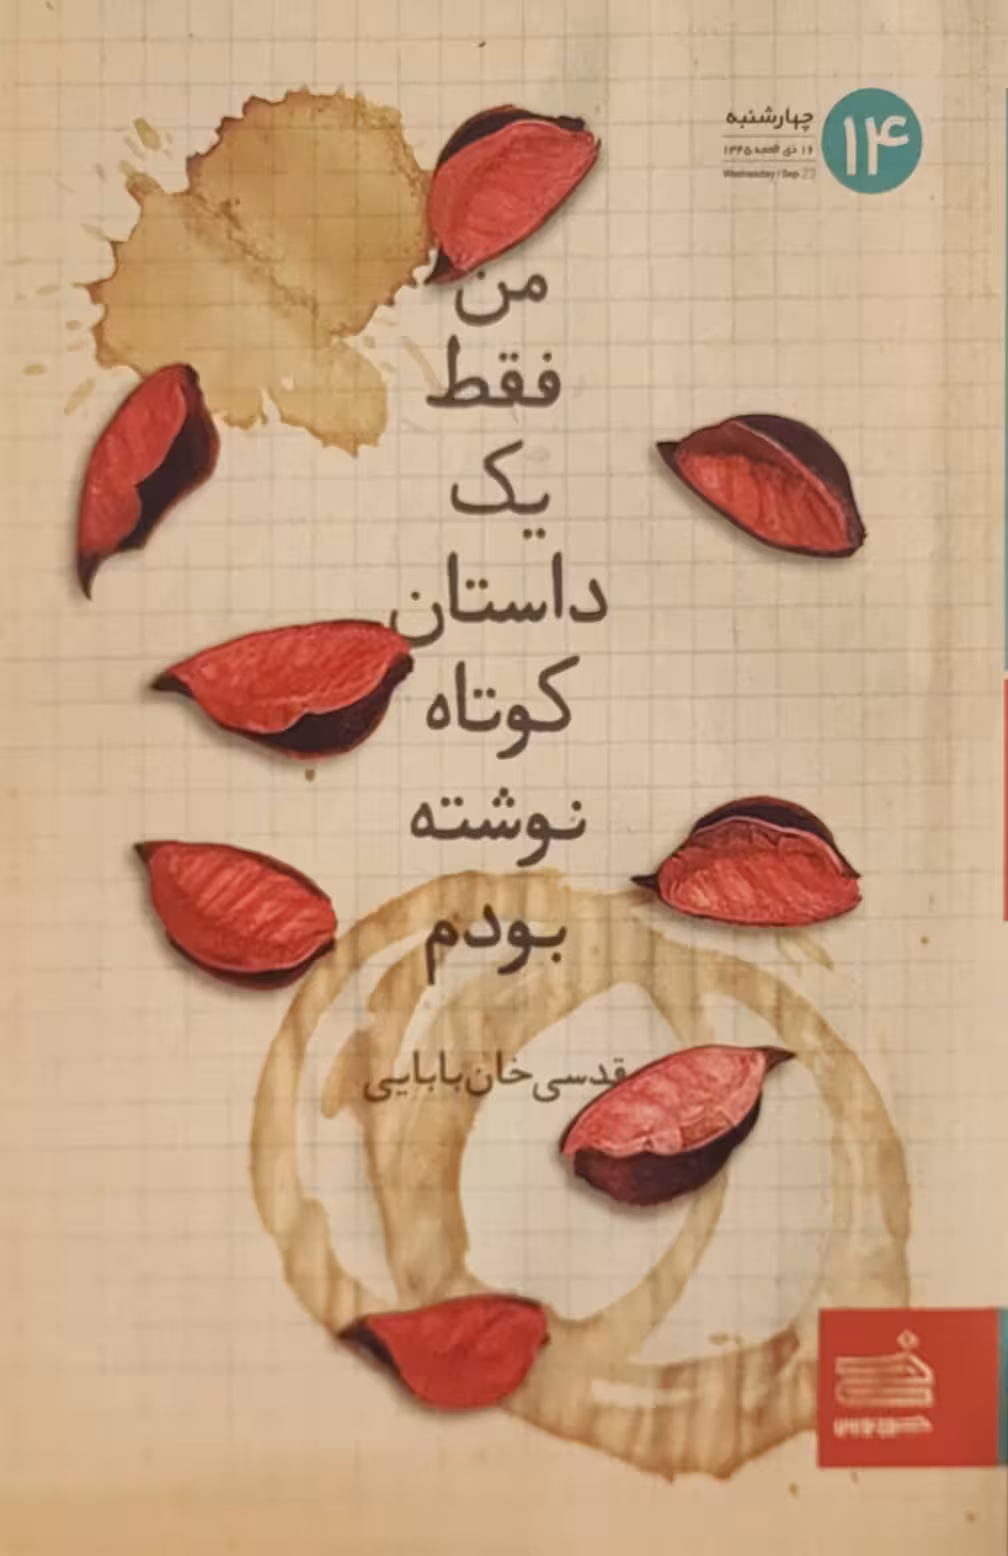 ۱۴
چهارشنبه
۱۶ ذی القعده ۱۴۴۵
Wednesday / Sep 23
من
فقط
یک
داستان
کوتاه
نوشته
بودم
قدسی خان‌بابایی